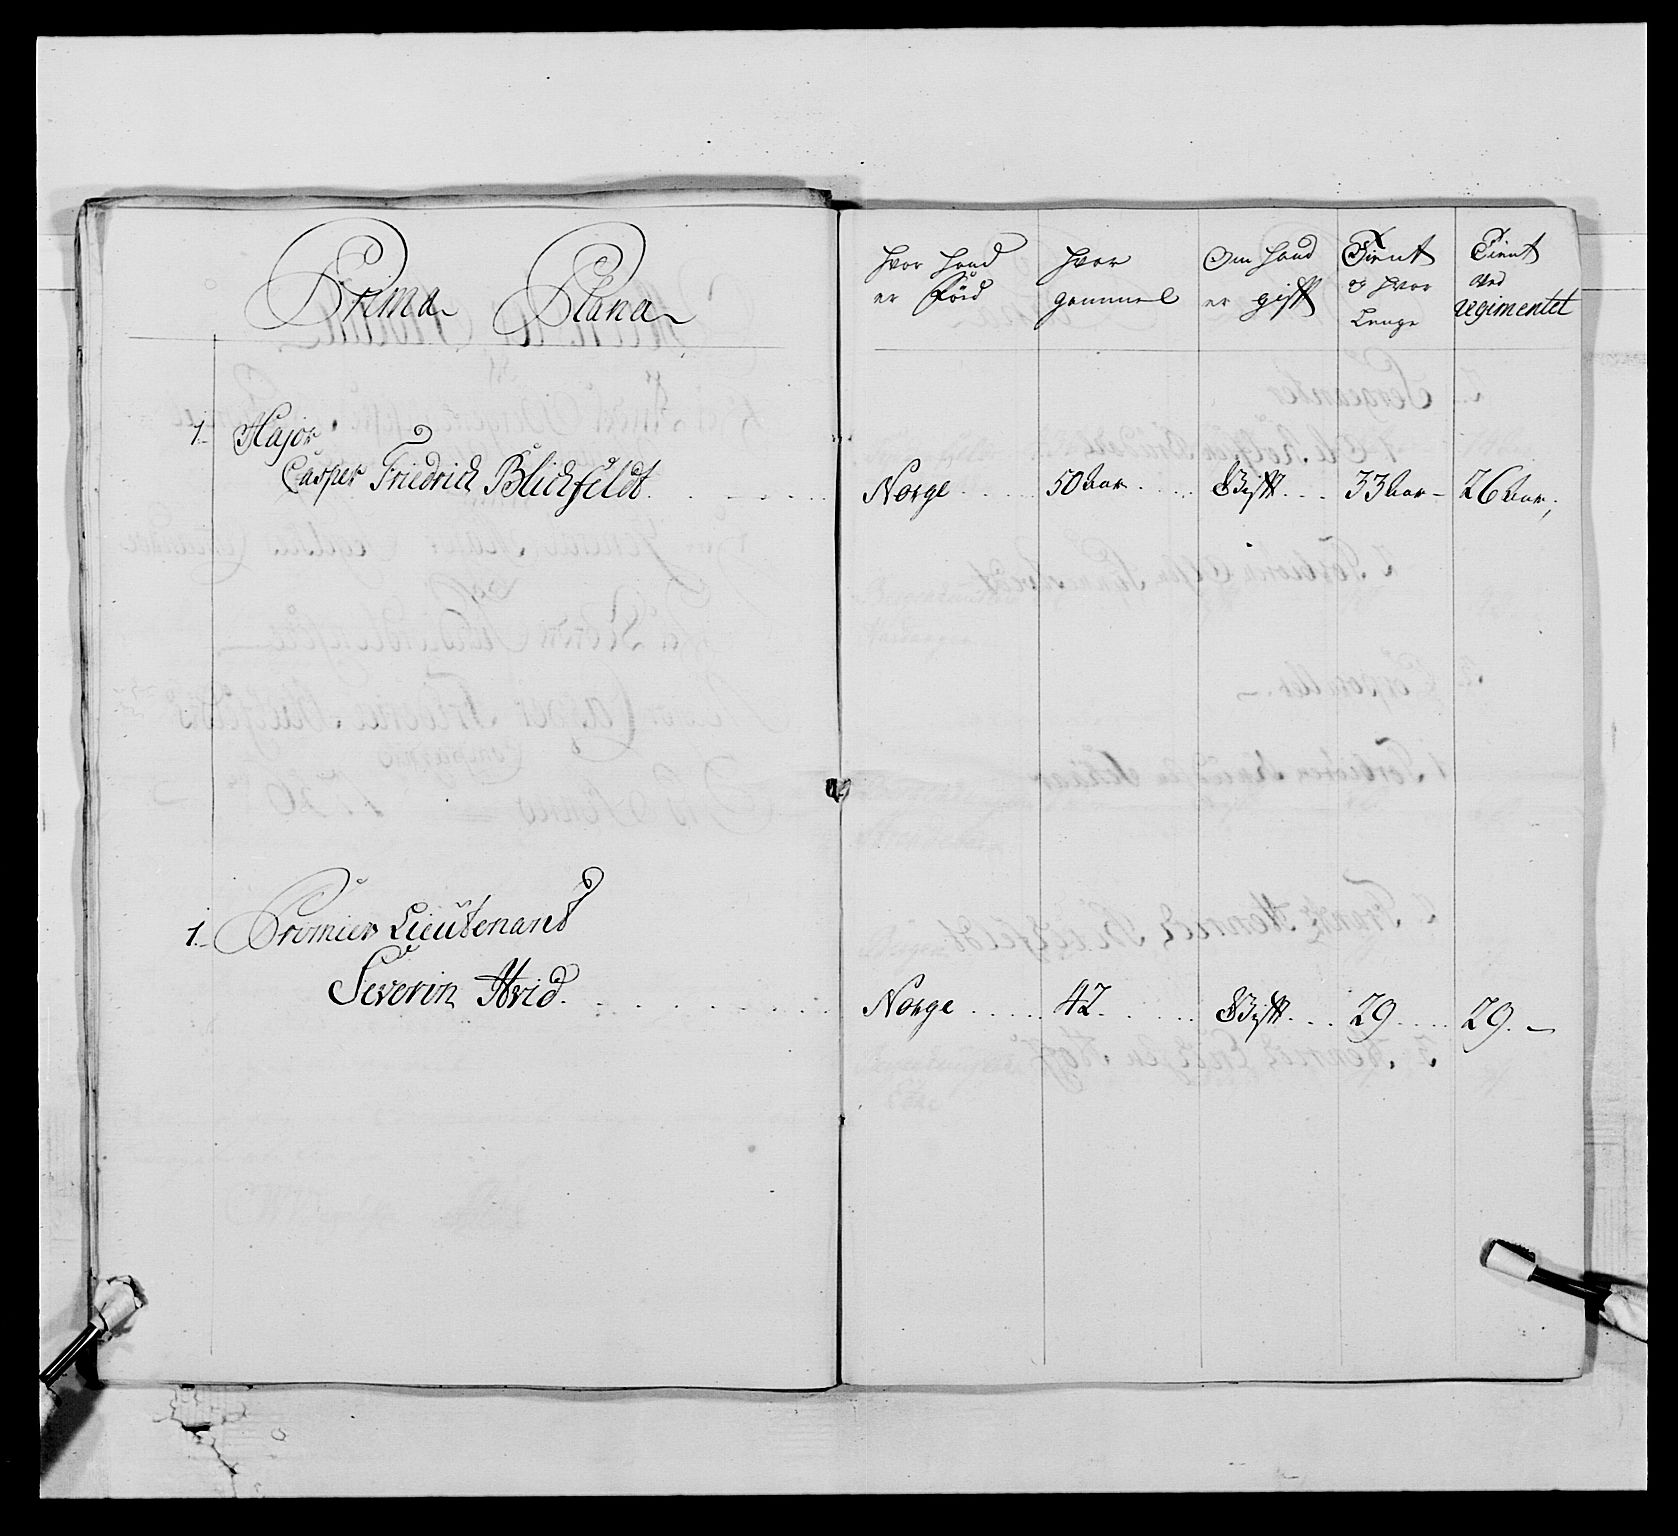 Prima Plana
hvor hand er Föed
hvor gammel
Om hand er gift
Tient & hvor Lenge
Tient ved regimentet
1. Major
Casper Friedrich Blichfeldt. Norge 50 Aar Gift 33 Aar 26 Aar,
1. Premier Lieutenant
Severin Hvid. Norge 42. Gift 29 29.